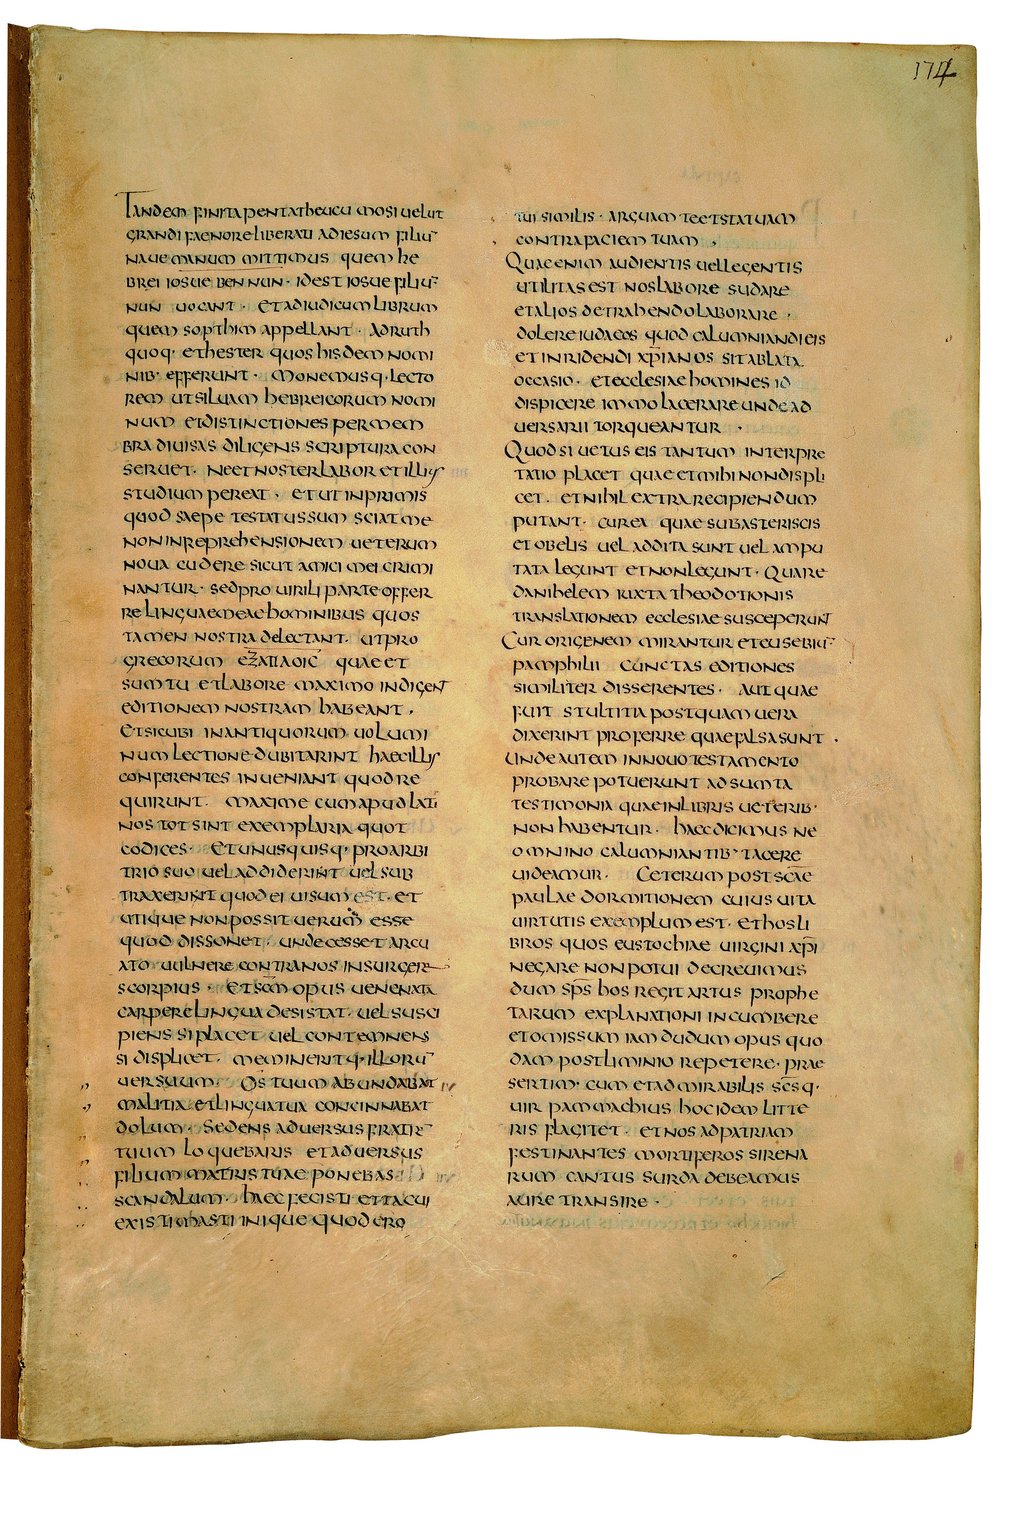 174
Tandem finita pentatheucu mosi uelut
grandi faenore liberati ad iesum filiu
naue manum mittimus quem he
brei iosue ben nun · id est iosue filiu
nun uocant · et ad iudicum librum
quem sopthim appellant · ad ruth
quoq· et hester quos hisdem nomi
nib· efferunt · monemusq· lecto
rem ut siluam hebreicorum nomi
num et distinctiones per mem
bra diuisas diligens scriptura con
seruet · ne et noster labor et illius
studium pereat · et ut inprimis
quod saepe testatus sum sciat me
non in reprehensionem ueterum
noua cudere sicut amici mei crimi
nantur · sed pro uirili parte offer
re linguae meae hominibus quos
tamen nostra delectant · ut pro
grecorum quae et
sumtu et labore maximo indigent
editionem nostram habeant ·
Et sicubi in antiquorum uolumi
num lectione dubitarint haec illis
conferentes inueniant quod re
quirunt · maxime cum apud lati
nos tot sint exemplaria quot
codices · et unusquisq· pro arbi
trio suo uel addiderint uel sub
traxerint quod ei uisum est · et
utique non possit uerum esse
quod dissonet · unde cesset arcu
ato uulnere contra nos insurgere
scorpius · et scm opus uenenata
carpere lingua desistat · uel susci
piens si placet uel contemnens
si displicet · memineritq· illoru
uersuum · Os tuum abundabat
malitia et lingua tua concinnabat
dolum · sedens aduersus fratre
tuum loquebaris et aduersus
filium matris tuae ponebas
scandalum · haec fecisti et tacui
existimasti inique quod ero
tui similis · arguam te et statuam
contra faciem tuam ·
Quae enim audientis uel legentis
utilitas est nos labore sudare
et alios detrahendo laborare ·
dolere iudaeos quod calumniandi eis
et inridendi xpianos sit ablata
occasio · et ecclesiae homines id
dispicere immo lacerare unde ad
uersarii torqueantur ·
Quod si uetus eis tantum interpre
tatio placet quae et mihi non displi
cet · et nihil extra recipiendum
putant · cur ea quae sub asteriscis
et obelis uel addita sunt uel ampu
tata legunt et non legunt · Quare
danihelem iuxta theodotionis
translationem ecclesiae susceperunt
Cur origenem mirantur et eusebiu
pamphilii cunctas editiones
similiter disserentes · aut quae
fuit stultitia postquam uera
dixerint proferre quae falsa sunt ·
Unde autem in nouo testamento
probare potuerunt adsumta
testimonia quae in libris ueterib·
non habentur · haec dicimus ne
omnino calumniantib· tacere
uideamur · Ceterum post scae
paulae dormitionem cuius uita
uirtutis exemplum est · et hos li
bros quos eustochiae uirgini xpi
negare non potui decreuimus
dum sps hos regit artus prophe
tarum explanationi incumbere
et omissum iam dudum opus quo
dam postliminio repetere · prae
sertim · cum et admirabilis scsq·
uir pammachius hoc idem litte
ris flagitet · et nos ad patriam
festinantes mortiferos sirena
rum cantus surda debeamus
aure transire ·